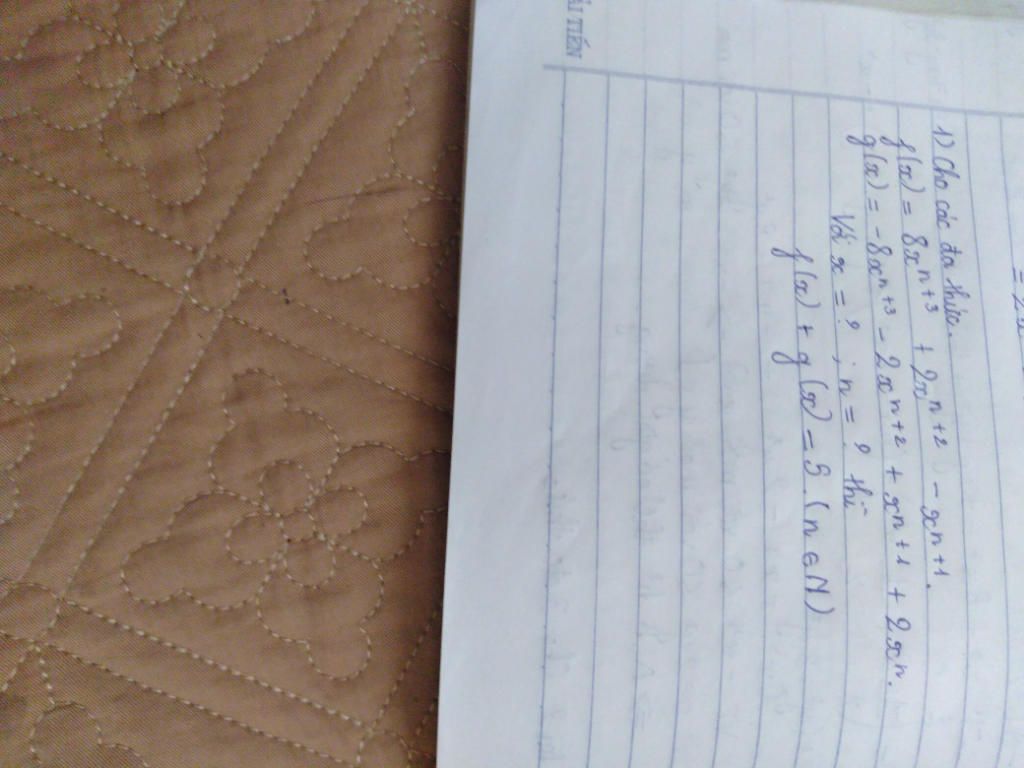 ẢI TIẾN
1) Cho các đa thức.
f(x) = 8xⁿ⁺³ + 2xⁿ⁺² - xⁿ⁺¹.
g(x) = -8xⁿ⁺³ - 2xⁿ⁺² + xⁿ⁺¹ + 2xⁿ.
Với x = ? ; n = ? thì
f(x) + g(x) = 9. (n ∈ N)